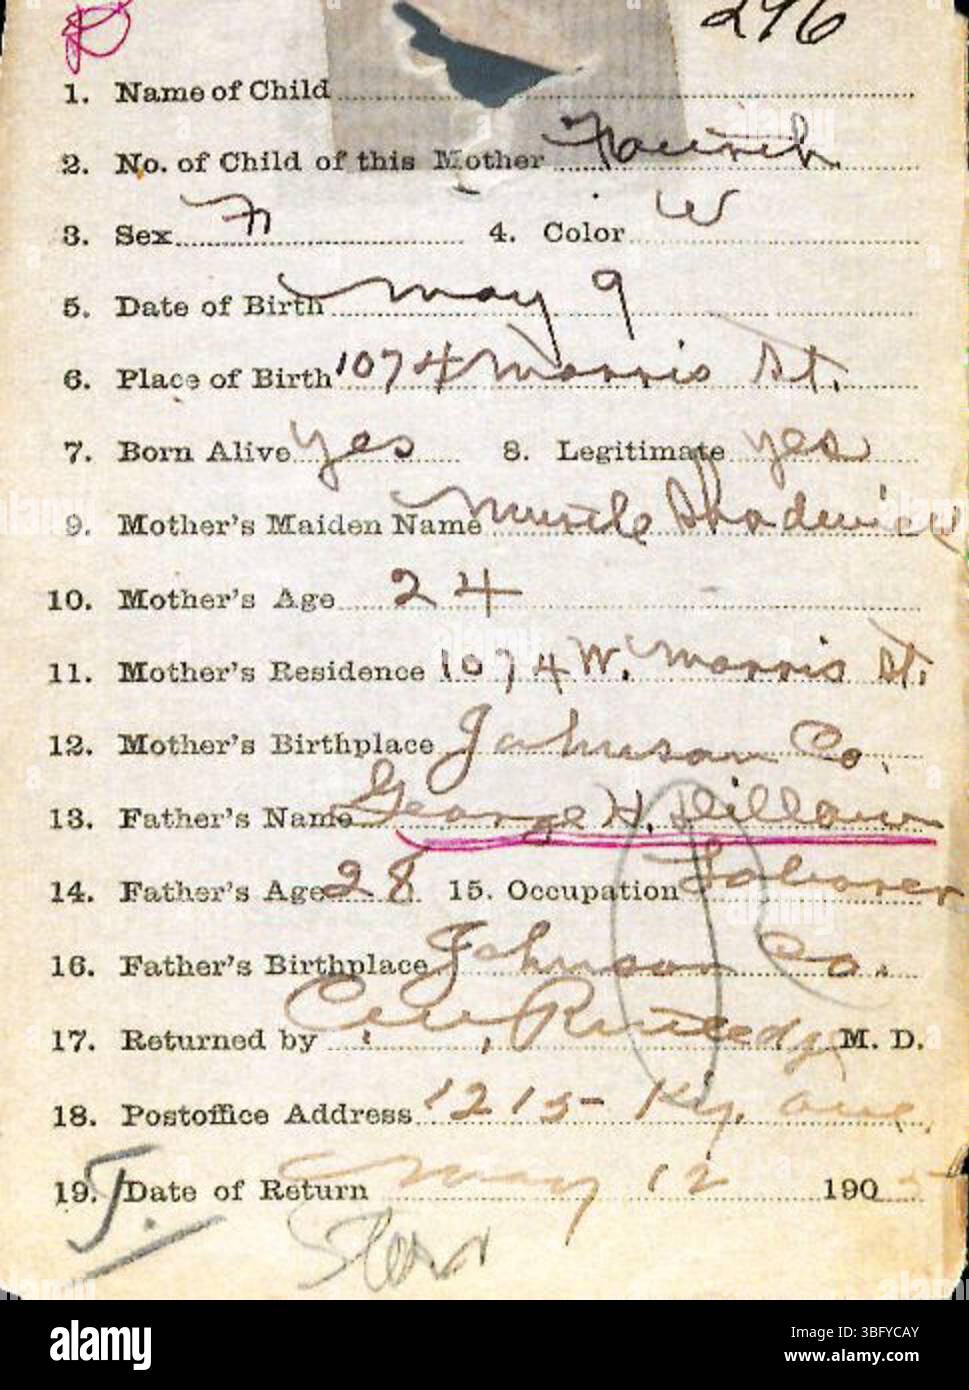 296
1. Name of Child
2. No. of Child of this Mother Fourth
3. Sex F 4. Color W
5. Date of Birth May 9
6. Place of Birth 1074 Morris St.
7. Born Alive yes 8. Legitimate yes
9. Mother's Maiden Name Myrtle
10. Mother's Age 24
11. Mother's Residence 1074 W. Morris St.
12. Mother's Birthplace Johnson Co.
13. Father's Name George H. Dillow
14. Father's Age 28 15. Occupation Laborer
16. Father's Birthplace Johnson Co.
17. Returned by Rutledge M. D.
18. Postoffice Address 1215- Ky. ave.
19. Date of Return May 12 1905
alamy
Image ID: 3BFYCAY
www.alamy.com